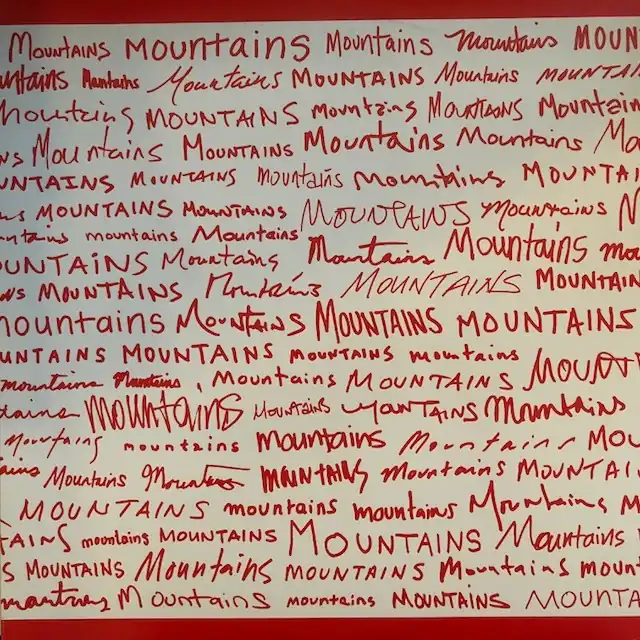 Mountains mountains Mountains Mountains MOUN
untains Mountains Mountains MOUNTAINS Mountains MOUNTAI
Mountains MOUNTAINS mountains MOUNTAINS Mountain
ns Mountains MOUNTAINS Mountains Mountains Mo
UNTAINS MOUNTAINS mountains Mountains MOUNTAI
ns MOUNTAINS MOUNTAINS MOUNTAINS Mountains M
ntains mountains Mountains Mountains Mountains mou
OUNTAiNS Mountains
ns MOUNTAINS Mountains MOUNTAINS MOUNTAIN
mountains Mountains MOUNTAINS MOUNTAINS
UNTAINS MOUNTAINS MOUNTAINS mountains MOUNT
mountains Mountains , Mountains MOUNTAINS
tains mountains Mountains MOUNTAINS Mountains
Mountains mountains mountains Mountains MOU
ains Mountains Mountains MOUNTAINS mountains MOUNTAI
MOUNTAINS mountains mountains Mountains M
TAINS mountains MOUNTAINS MOUNTAINS Mountains
S MOUNTAINS Mountains MOUNTAINS Mountains moun
Mountains mountains MOUNTAINS MOUNTA